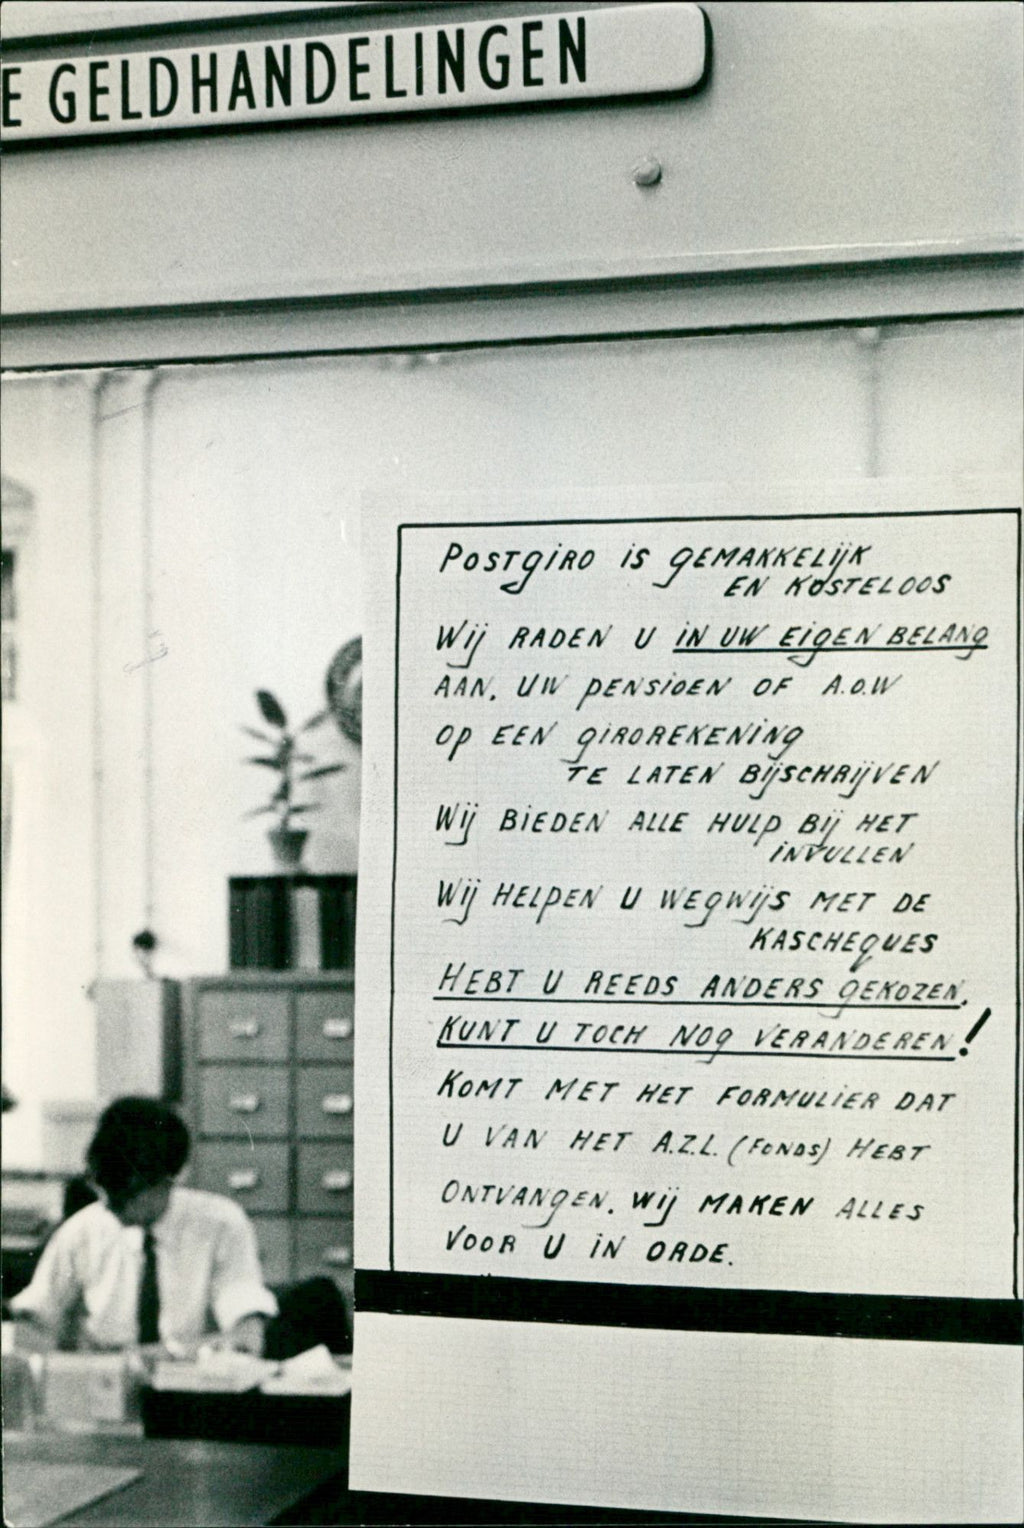 E GELDHANDELINGEN
POSTGIRO IS GEMAKKELIJK
EN KOSTELOOS
WIJ RADEN U IN UW EIGEN BELANG
AAN, UW PENSIOEN OF A.O.W
OP EEN GIROREKENING
TE LATEN BIJSCHRIJVEN
WIJ BIEDEN ALLE HULP BIJ HET
INVULLEN
WIJ HELPEN U WEGWIJS MET DE
KASCHEQUES
HEBT U REEDS ANDERS GEKOZEN,
KUNT U TOCH NOG VERANDEREN!
KOMT MET HET FORMULIER DAT
U VAN HET A.Z.L. (FONDS) HEBT
ONTVANGEN. WIJ MAKEN ALLES
VOOR U IN ORDE.